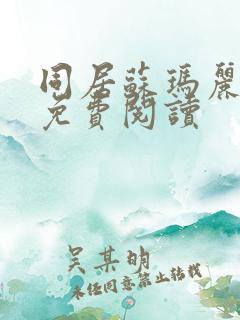 同居蘇瑪麗
免費閱讀
吴某明
未经同意禁止转载